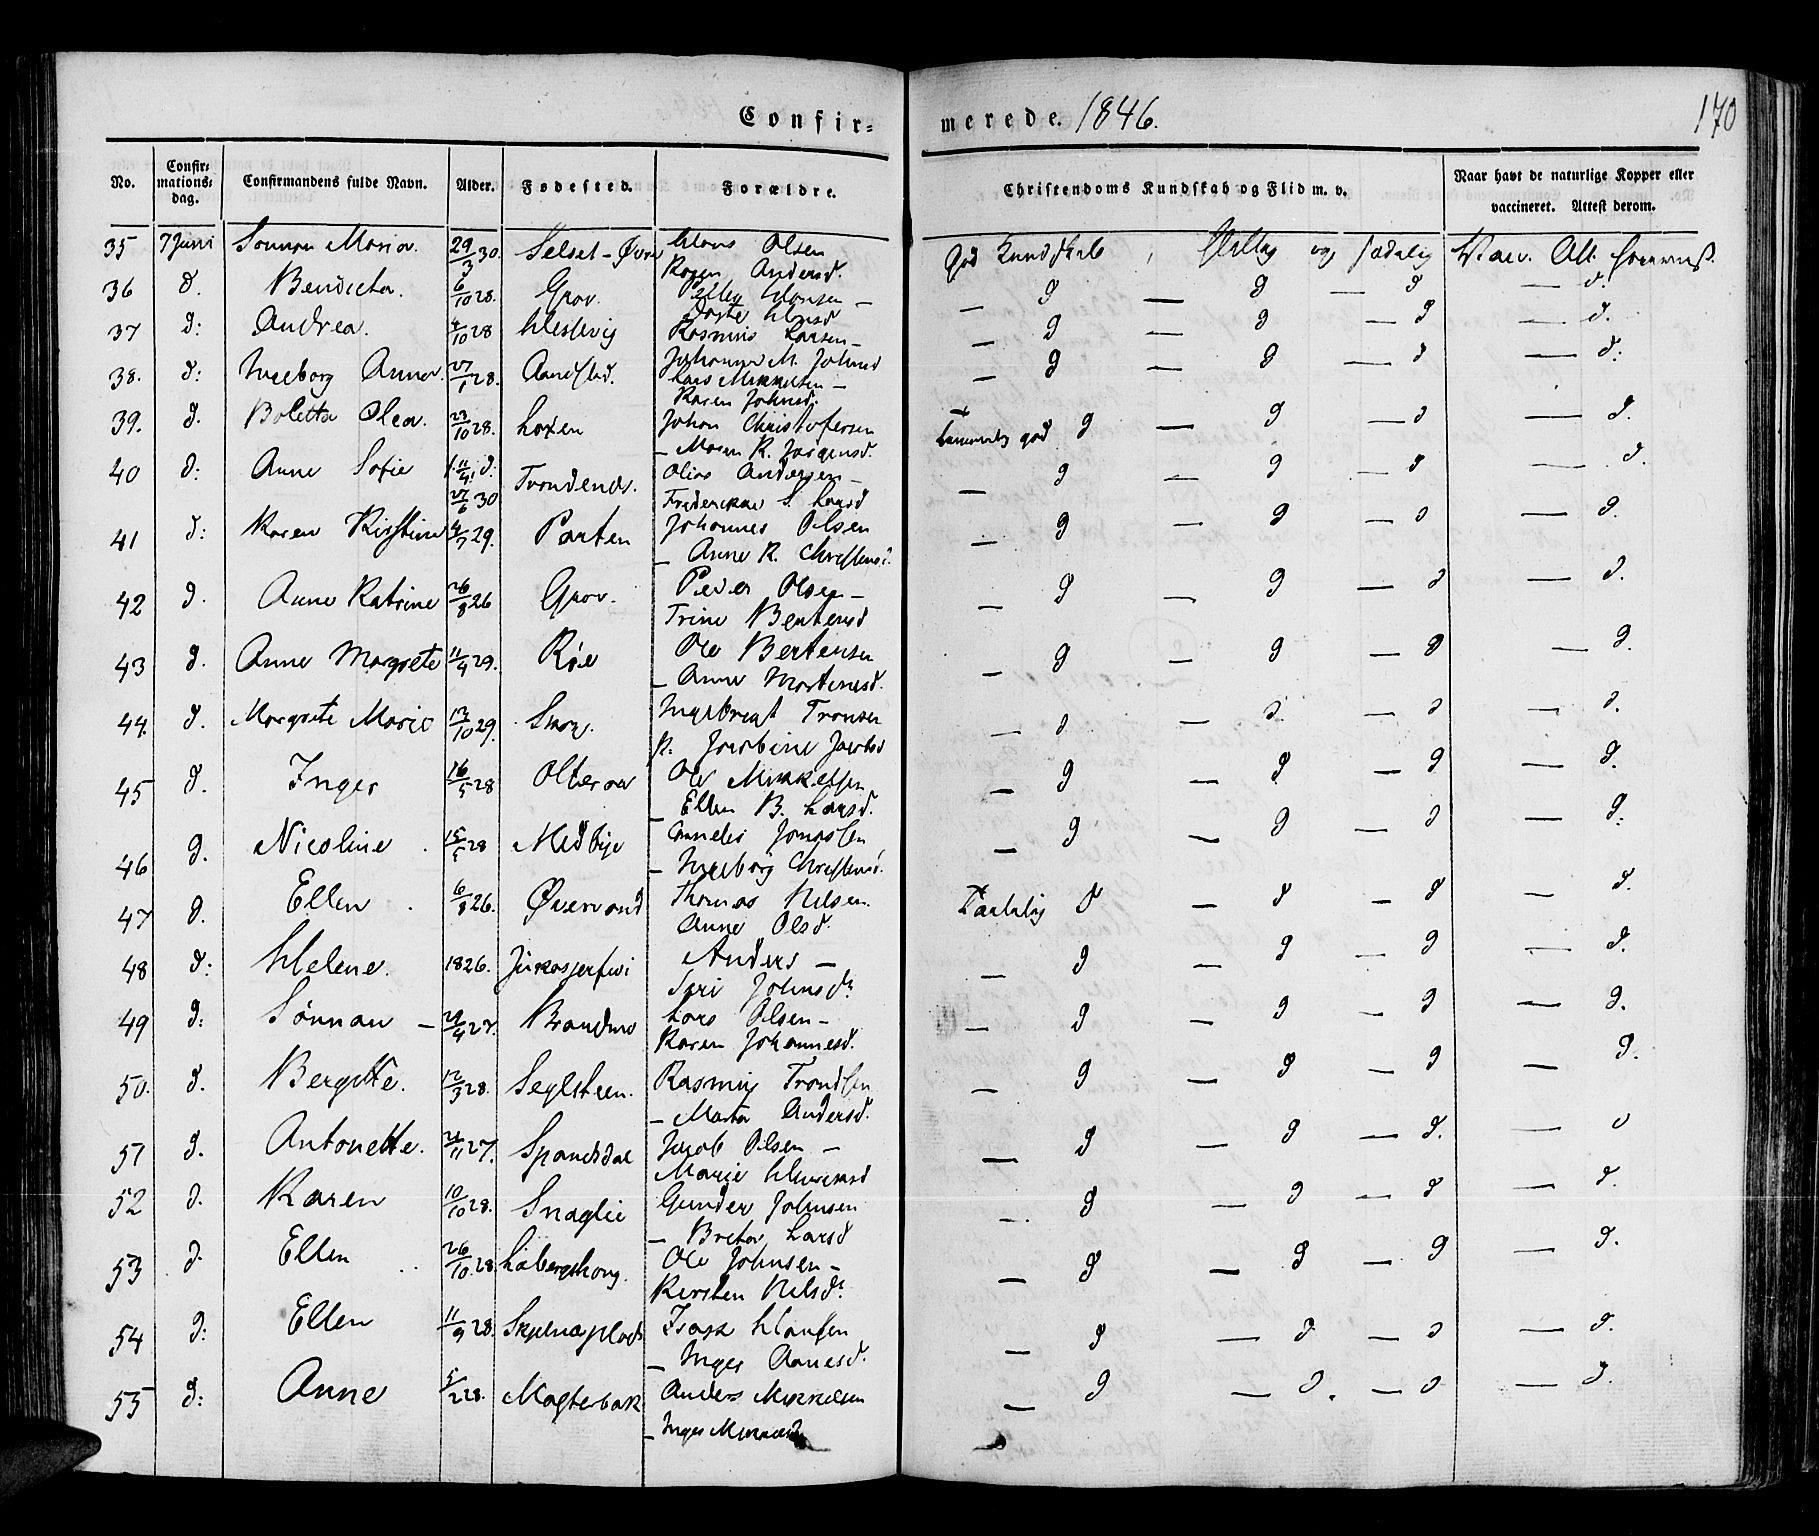 Confir=
merede. 1846.
170
No.
Confir=
mations=
dag.
Confirmandens fulde Navn.
Alder.
Fødested.
Forældre.
Christendoms Kundskab og Flid m. v.
Naar havt de naturlige Kopper eller
vaccineret. Attest derom.
35 7 Juni Sønnau Maria. 29/3 30. Selset - Øvre Olsen
Karen Andersd.
God Kundskab, og sædelig Vac. Att.
36 d. Bendicta. 6/10 28. Grov.
— d — d — d — d.
37 d: Andrea. 4/10 28 Rasmus Larsen —
— d — d — d — d.
Johanna M. Johnsd
38. d: Ingeborg Anna. 27/1 28. Aandstad. Lars Mikkelsen —
— d — d — d — d:
Karen Johnsd.
39. d. Boletta Olea. 23/10 28. Loxen Johan Christofersen
god d — d — d — d.
— Maren R. Jørgensd.
40 d: Anne Sofie d: Trondenes. Olias Andersen —
27/6 30
— d — d — d — d.
Frederikke S. Larsd
41 d: Karen Kirstine 4/7 29. Parten Johannes Olsen
— d — d — d — d.
— Anne K. Christensd.
42 d. Anne Katrine 26/8 26 Grov. Peder Olsen —
— d — d — d — d.
Trine Bentensd
43 d. Anne Margrete 11/9 29. Røe Ole Bertensen
— d — d — d — d.
— Anne Martinesd.
44. d. Margrete Marie 13/10 29. Skog. Ingebrigt Tronsen
— d — d — d — d.
K. Jacobine Jacobsd
45 d. Inger 16/5 28 Olteraa Ole Mikkelsen
— d — d — d — d.
— Ellen B. Larsd.
46 d. Nicoline. 15/5 28 Medbye Cornelis Jonassen
— d — d — d — d:
— Ingeborg Christensd.
47 d. Ellen. 6/8 26. Øvervand Thomas Nilsen.
Taalelig d — d — d — d.
Anne Olsd.
48 d: Helene. 1826. Jukasjerfwi Anders —
— d — d — d — d.
Siri Johnsdr
49 d: Sønnau — 29/4 27. Brandmo Lars Olsen —
— d — d — d — d.
Karen Johannesd.
50. d. Bergitte. 12/3 28. Seglsteen. Rasmus Trondsen
— d — d — d — d.
— Marta Andersd.
51 d. Antonette. 21/11 27. Spandsdal Jacob Olsen —
— d — d — d. — d
Marie
52 d. Karen 10/10 28. Snaglie Gunder Johnsen
— d — d — d — d.
— Brita Larsd
53 d. Ellen 26/10 28. Løbergskong. Ole Johnsen —
— d — d — d — d.
Kirsten Nilsdr
54 d: Ellen 11/9 28. Isak Hansen
— d — d — d — d.
— Inger Aanesd.
55 d: Anne 5/2 28. Magterbak Anders Mikkelsen
— d — d. — d — d.
— Inger